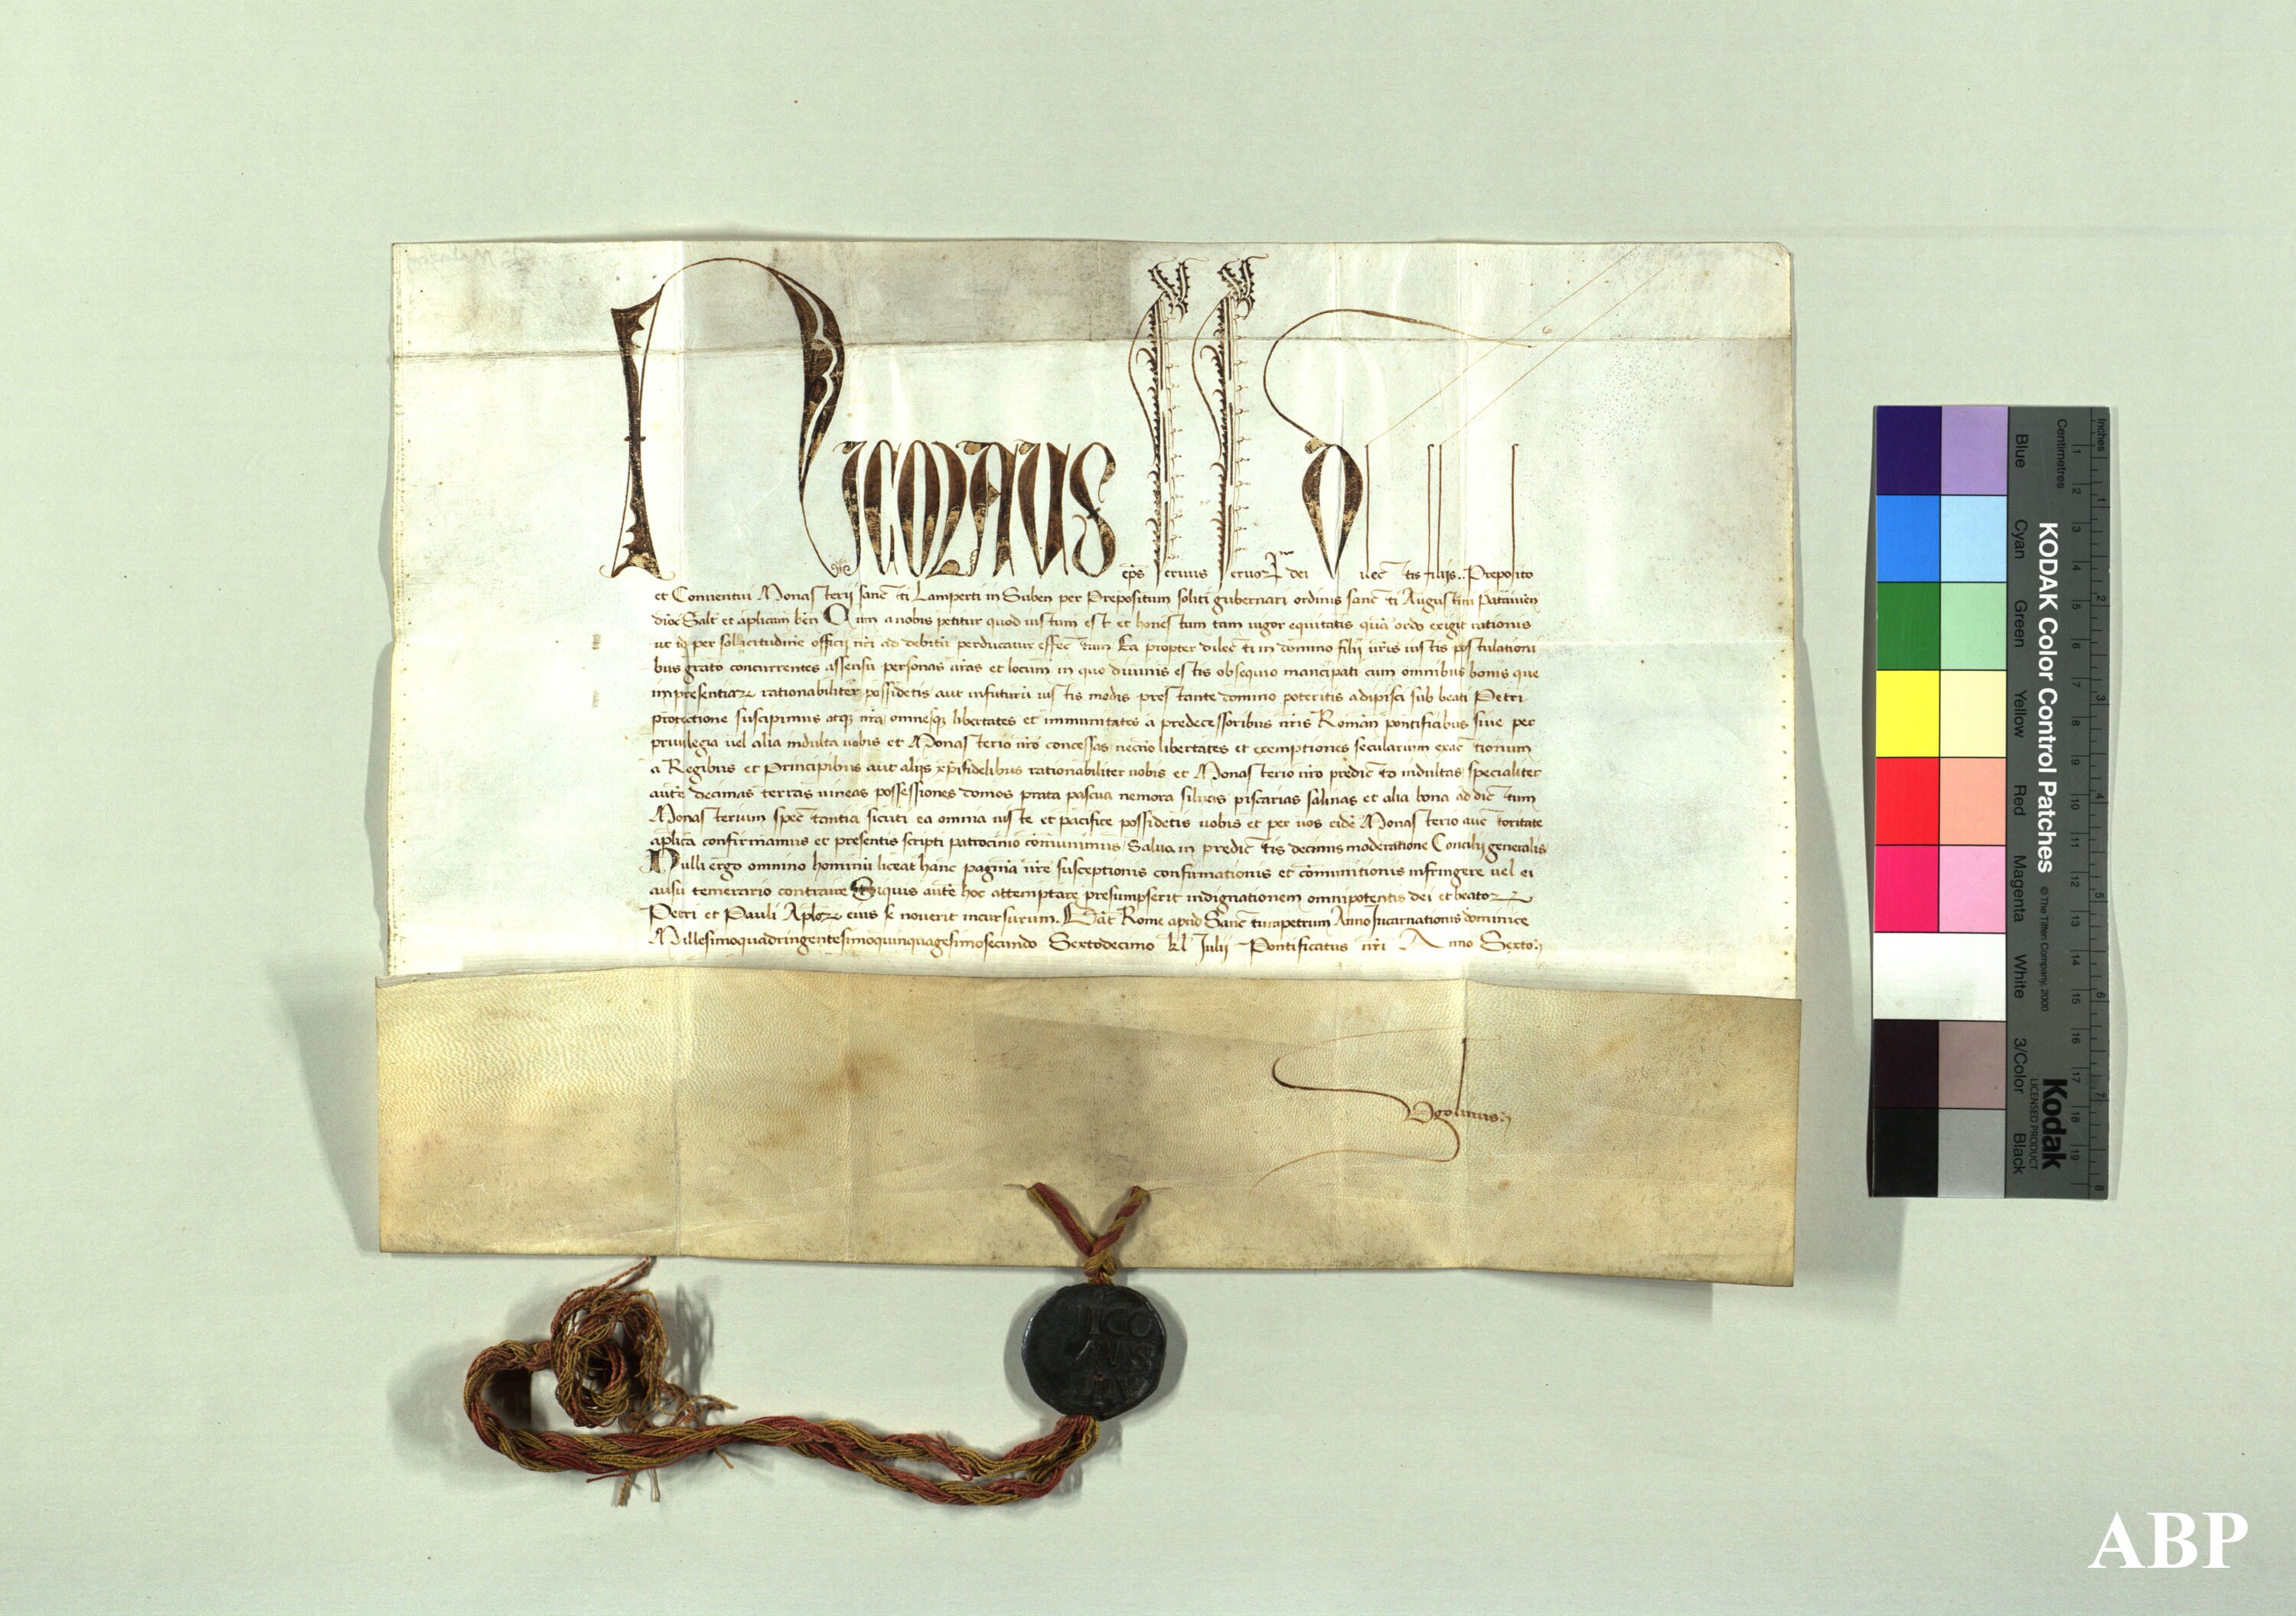 NICOLAUS ep̄s seruus seruoꝝ dei Dilectis filiis .. Preposito
et Conuentui Monasterij sancti Lamperti in Suben per Prepositum soliti gubernari ordinis sancti Augustini Patauien̄
dioc̄ Salt̄ et aplicam ben̄ Cum a nobis petitur quod iustum est et honestum tam uigor equitatis quā ordo exigit rationis
ut id per sollicitudinē officij nr̄i ad debitū perducatur effectum Ea propter dilecti in domino filij ur̄is iustis postulationi
bus grato concurrentes assensu personas ur̄as et locum in quo diuinis estis obsequio mancipati cum omnibus bonis que
inpresentiaꝝ rationabiliter possidetis aut infuturū iustis modis prestante domino poteritis adipisci sub beati Petri
protectione suscipimus atqꝫ nr̄a, omnesqꝫ libertates et immunitates a predecessoribus nr̄is Roman̄ pontificibus siue per
priuilegia uel alia indulta uobis et Monasterio ur̄o concessas necnō libertates et exemptiones secularium exactionum
a Regibus et Principibus aut alijs xp̄ifidelibus rationabiliter uobis et Monasterio ur̄o predicto indultas, specialiter
autē decimas terras uineas possessiones domos prata pascua nemora siluas piscarias salinas et alia bona ad dictum
Monasterium spectantia sicuti ea omnia iuste et pacifice possidetis uobis et per uos eidē Monasterio auctoritate
ap̄lica confirmamus et presentis scripti patrocinio cōmunimus, Salua in predictis decimis moderatione Concilij generalis
Nulli ergo omnino hominū liceat hanc paginā nr̄e susceptionis confirmationis et cōmunitionis infringere uel ei
ausu temerario contraire Siquis autē hoc attemptare presumpserit indignationem omnipotentis dei et beatoꝝ
Petri et Pauli Ap̄loꝝ eius se nouerit incursurum. Dat̄ Rome apud Sanctumpetrum Anno Incarnationis dominice
Millesimoquadringentesimoquinquagesimosecundo Sextodecimo kl̄ Julij Pontificatus nr̄i Anno Sexto
Vgolinus
NICO
Inches
Centimetres
Blue
Cyan
Green
Yellow
Red
Magenta
White
3/Color
Black
KODAK Color Control Patches
© The Tiffen Company, 2000
Kodak
LICENSED PRODUCT
1 2 3 4 5 6 7 8 9 10 11 12 13 14 15 16 17 18 19
1 2 3 4 5 6 7 8
ABP